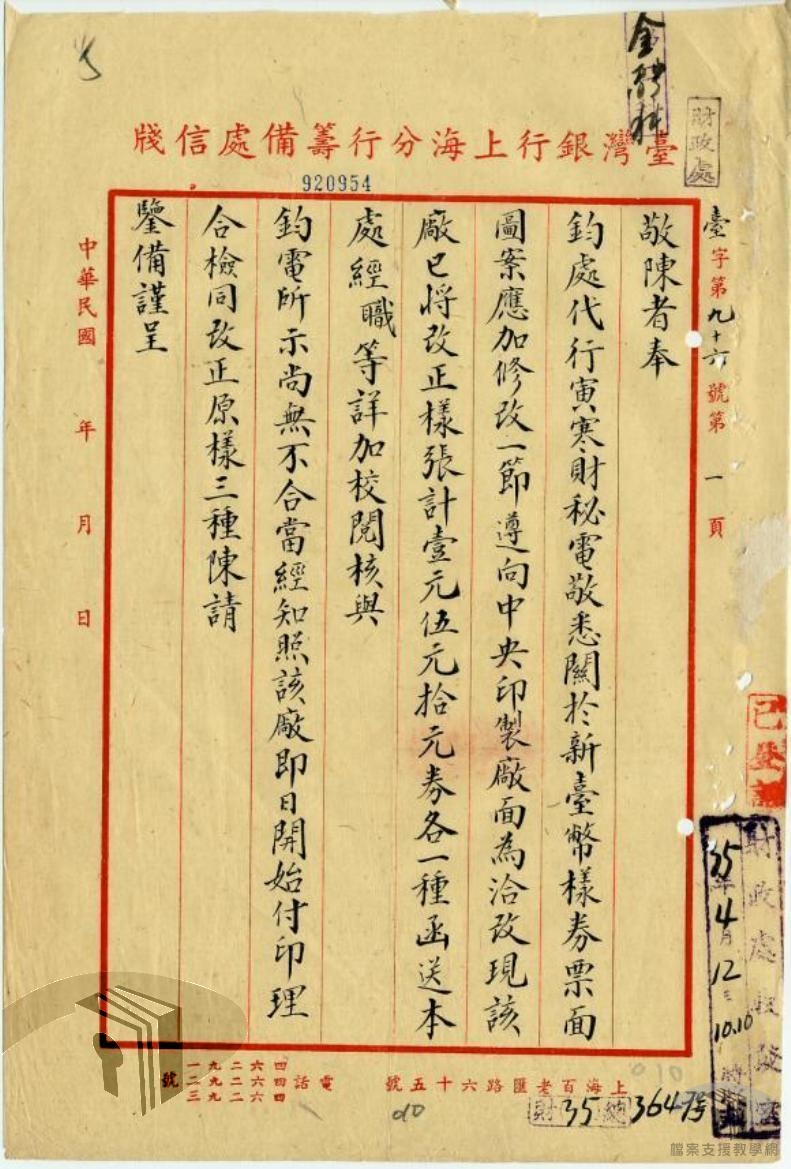 金融科
財政處
臺灣銀行上海分行籌備處信牋
920954
臺字第九十六號第一頁
敬陳者奉
鈞處代行寅寒財秘電敬悉關於新臺幣樣券票面
圖案應加修改一節遵向中央印製廠面為洽改現該
廠已將改正樣張計壹元伍元拾元券各一種函送本
處經職等詳加校閱核與
鈞電所示尚無不合當經知照該廠即日開始付印理
合檢同改正原樣三種陳請
鑒備謹呈
中華民國 年 月 日
已登記
財政處收發室
35年4月12日10.10時
上海百老匯路六十五號
電話
四六二九一
四六二九二
四六二九三
號
財35總3647号
檔案支援教學網